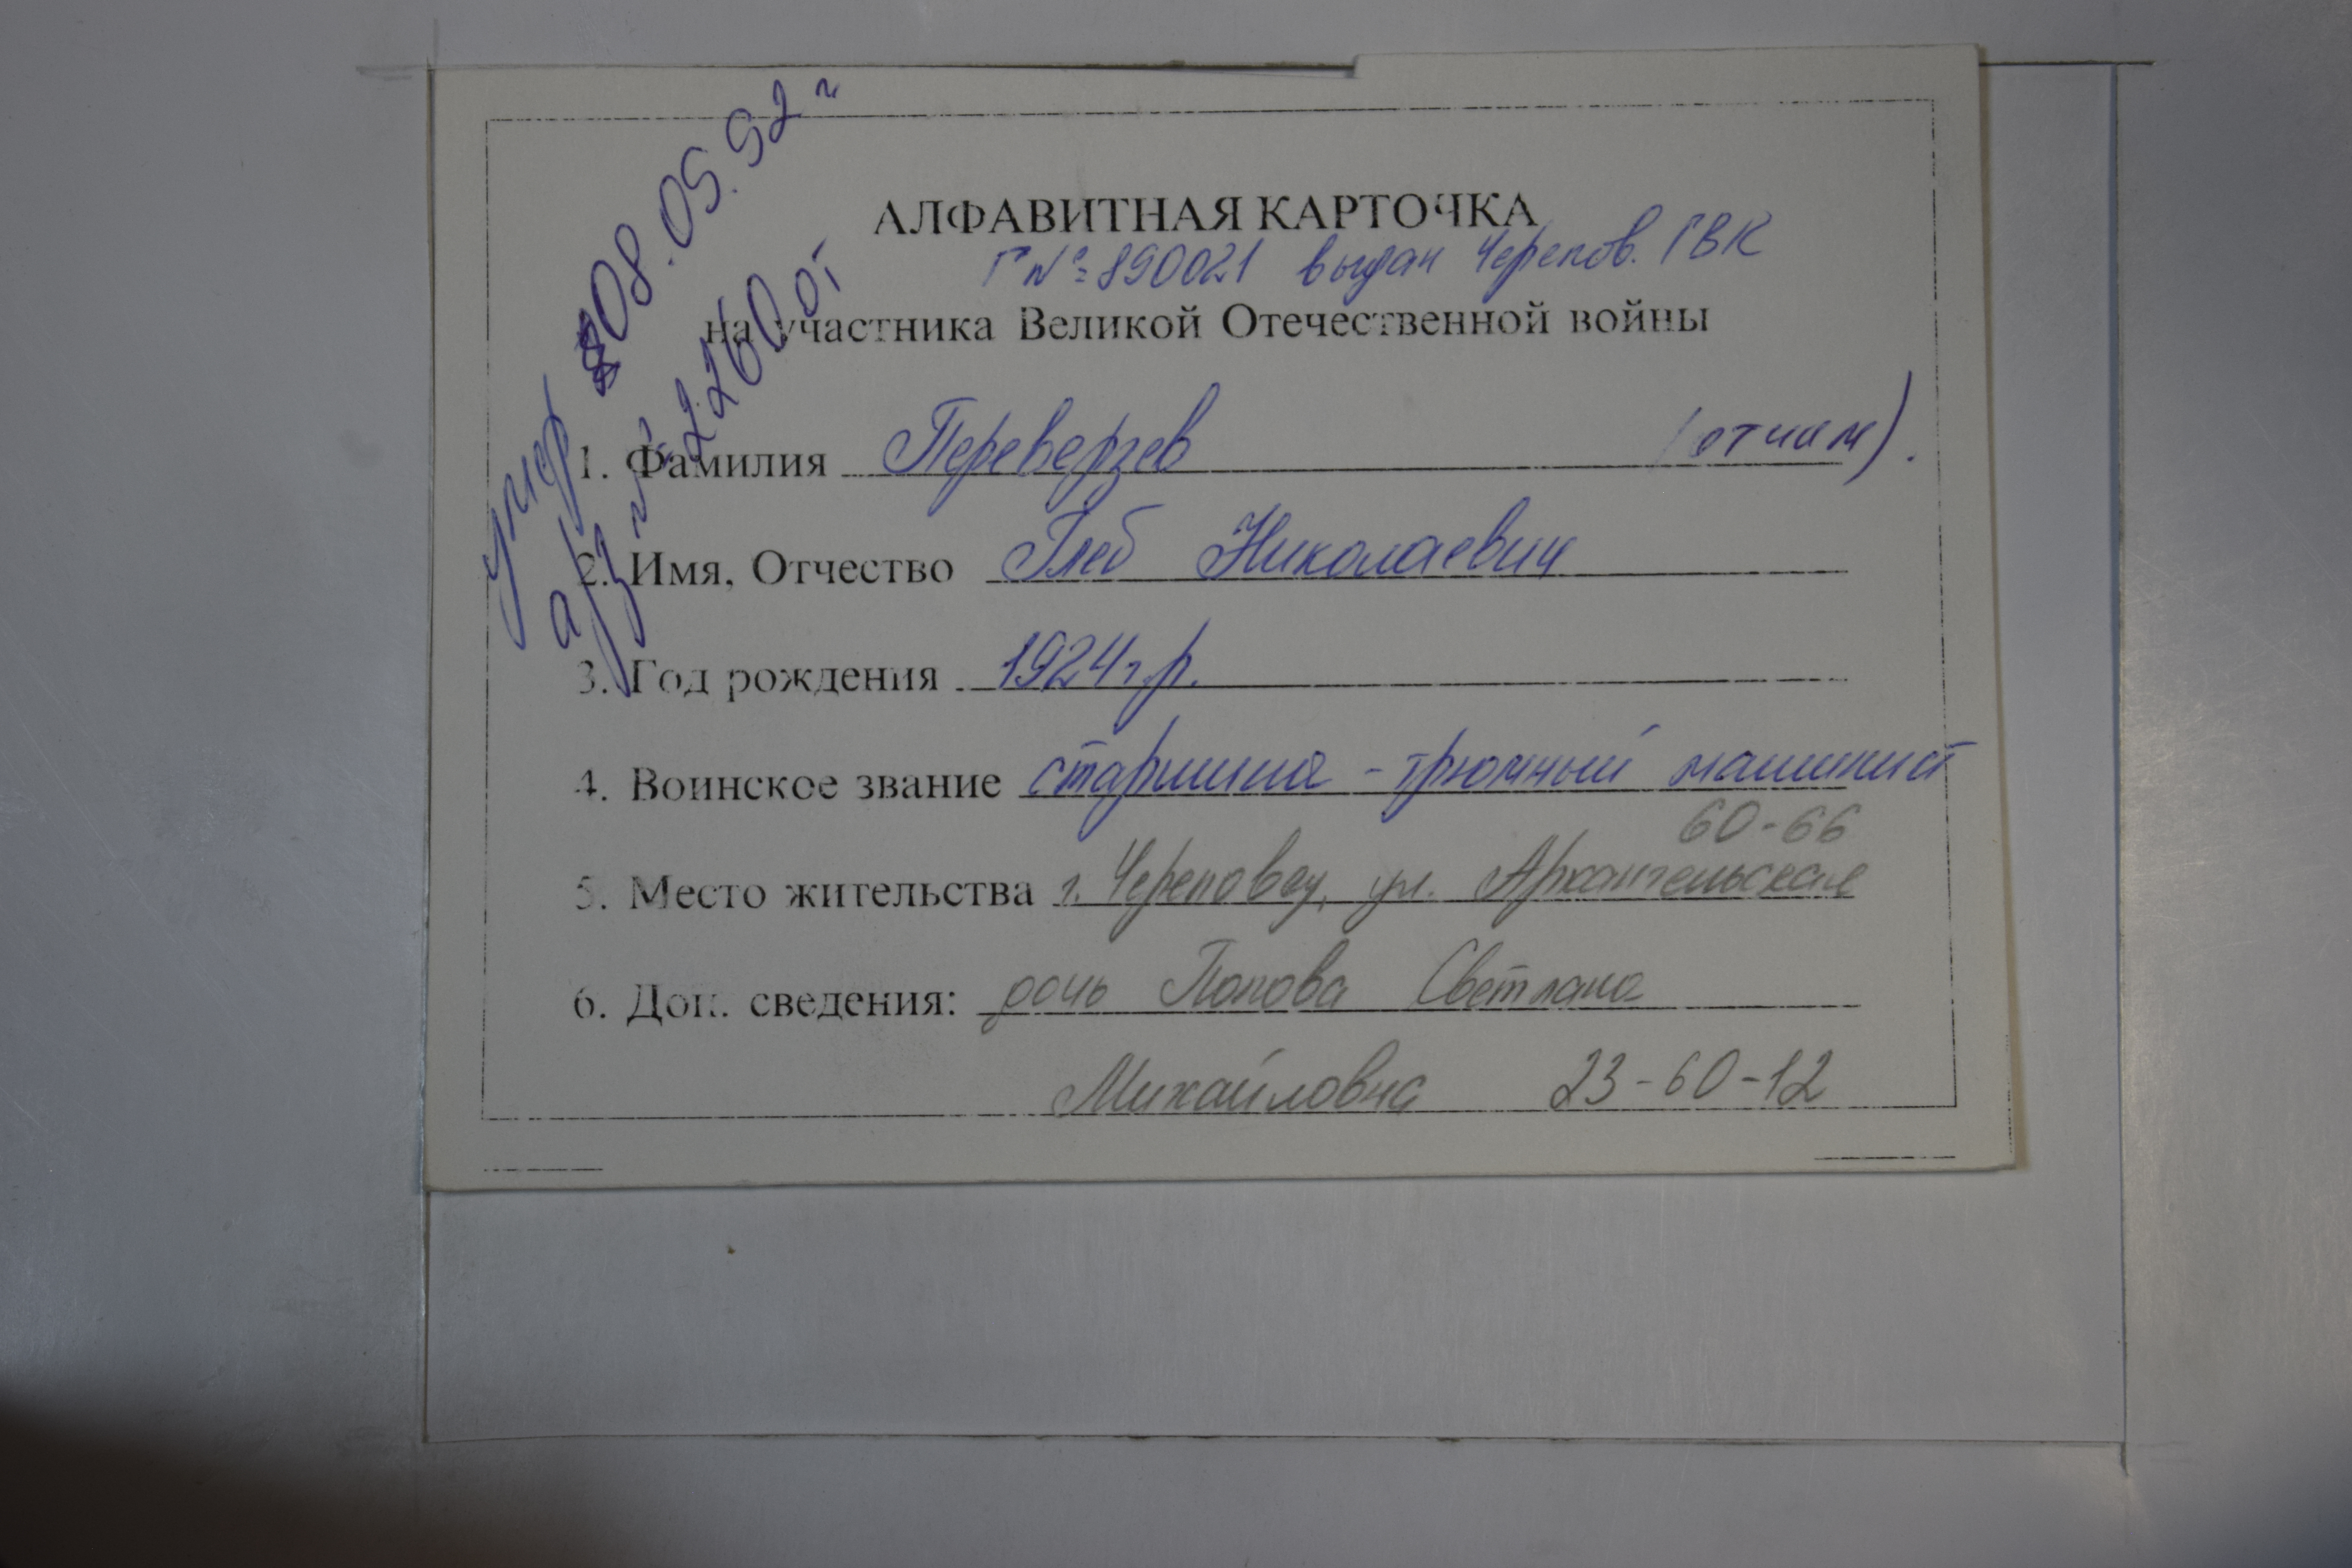 умер 08.05.92 г
а/з № 2260 от
АЛФАВИТНАЯ КАРТОЧКА
Г № 890021 выдан Черепов. ГВК
на участника Великой Отечественной войны
1. Фамилия Переверзев (отчим).
2. Имя, Отчество Глеб Николаевич
3. Год рождения 1924 г.р.
4. Воинское звание старшина - трюмный машинист
60-66
5. Место жительства г. Череповец, ул. Архангельская
6. Доп. сведения: дочь Попова Светлана
Михайловна 23-60-12